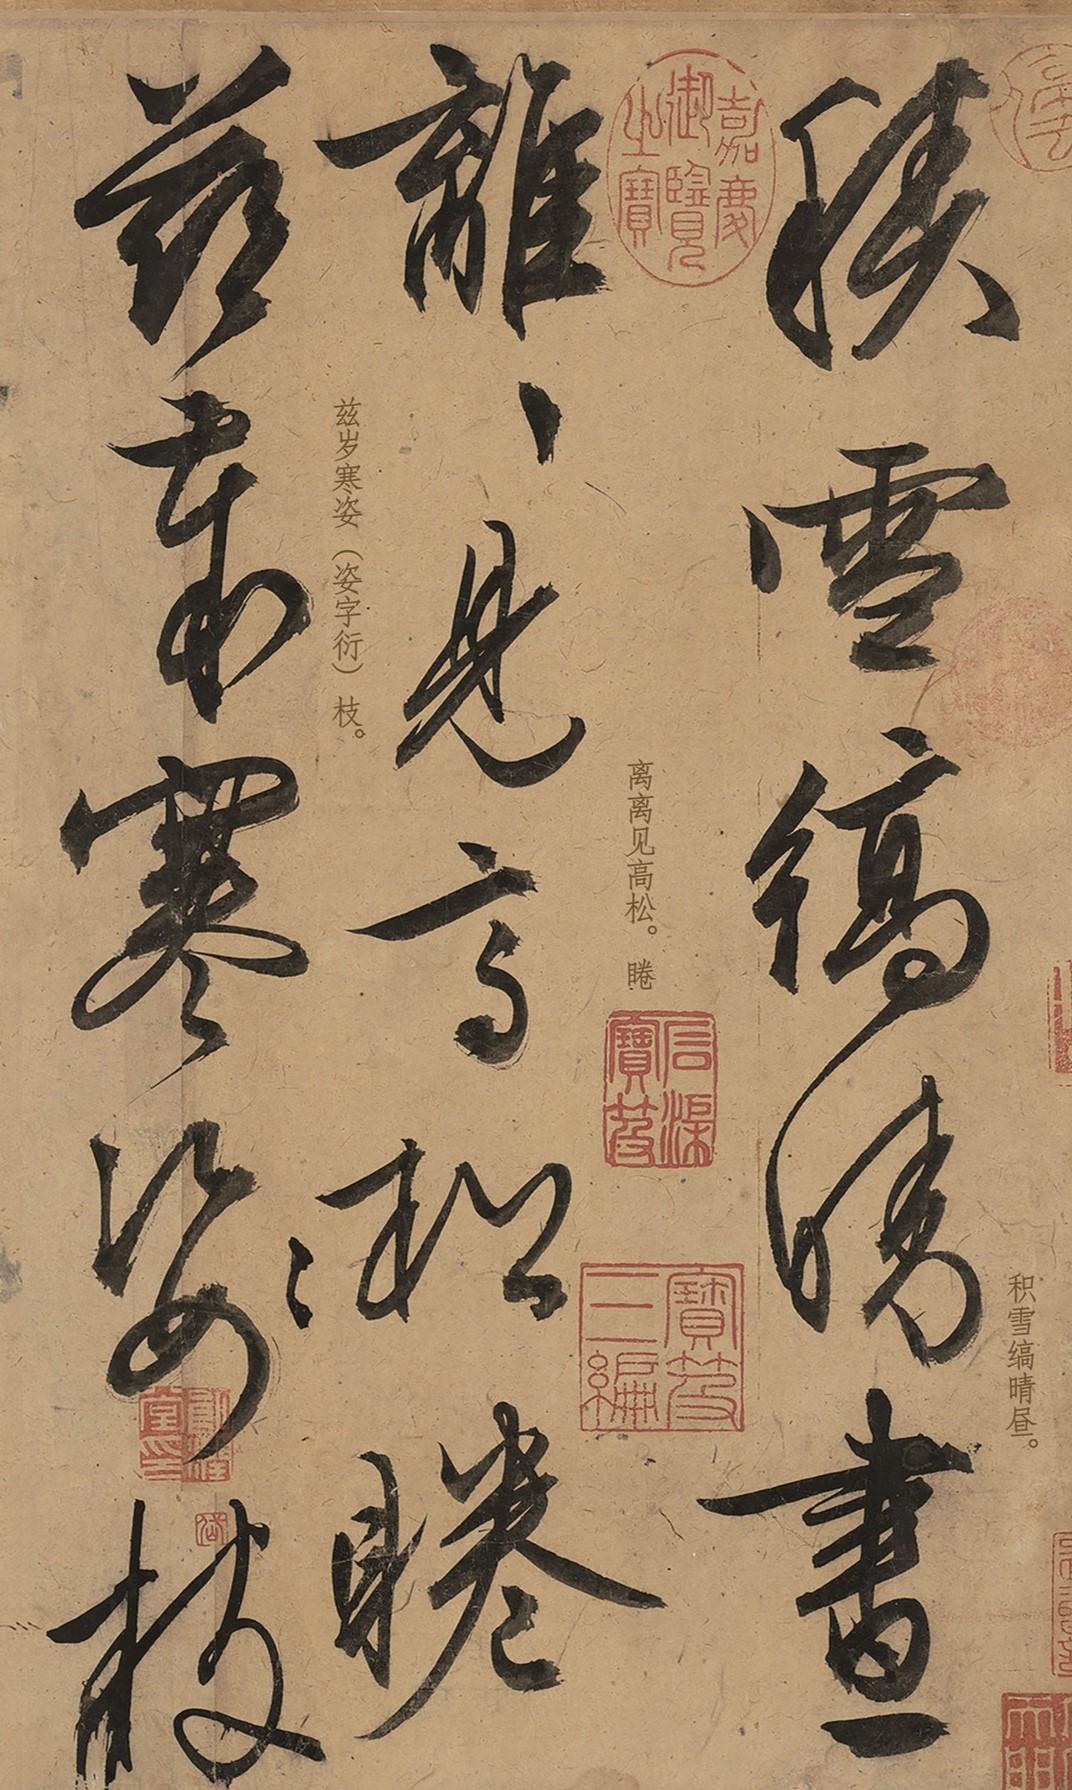 積雪縞晴晝
積雪缟晴昼。
離〻見高松睠
离离见高松。睠
茲歲寒姿〻枝
兹岁寒姿（姿字衍）枝。
嘉慶御覽之寶
石渠寶笈
寶笈三編